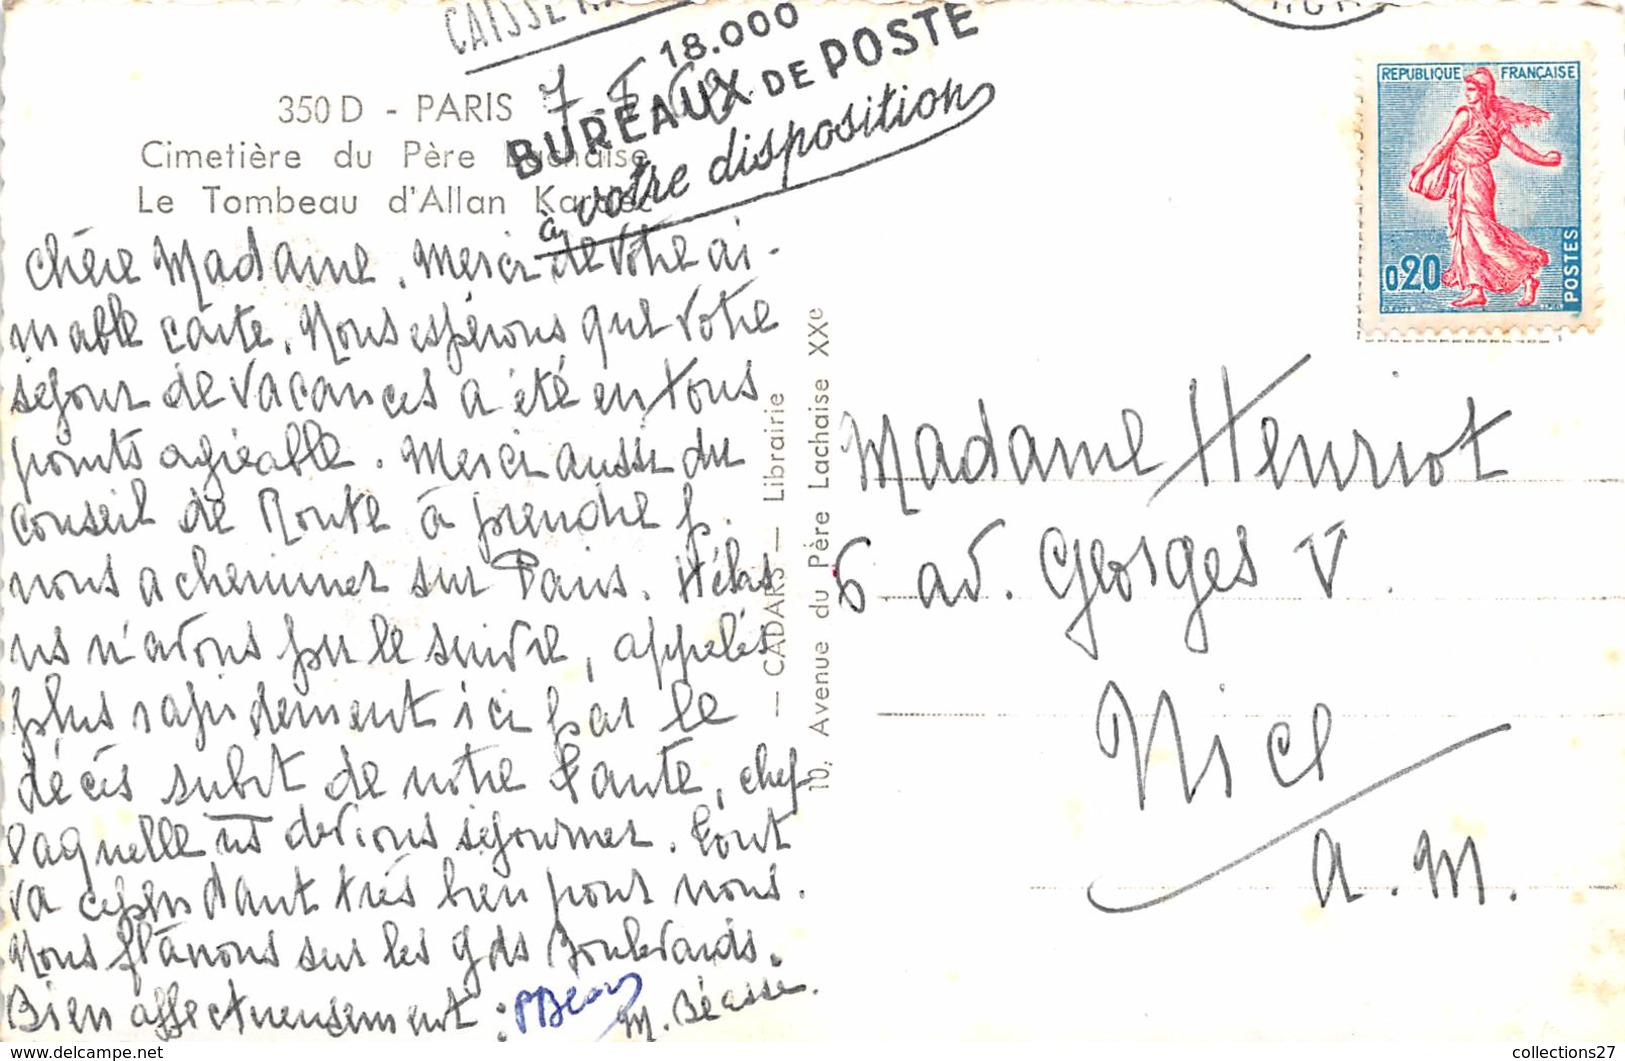 CAISSE
18.000
BUREAUX DE POSTE
à votre disposition
350 D - PARIS
Cimetière du Père Lachaise
Le Tombeau d'Allan Kardec
Chère Madame, Merci de votre ai-
mable carte. Nous espérons que votre
séjour de vacances a été en tous
points agréable. Merci aussi du
conseil de Route à prendre p.
nous acheminer sur Paris. Hélas
ns n'avons pu le suivre, appelés
plus rapidement ici par le
décès subit de notre Tante, chez
laquelle ns devions séjourner. Tout
va cependant très bien pour nous.
Nous flânons sur les gds Boulevards.
Bien affectueusement :
M. Béasse.
— CADARS — Librairie
10, Avenue du Père Lachaise XXe
REPUBLIQUE FRANÇAISE
0,20
POSTES
Madame Henriot
6 av. Georges V
Nice
A. M.
collections27